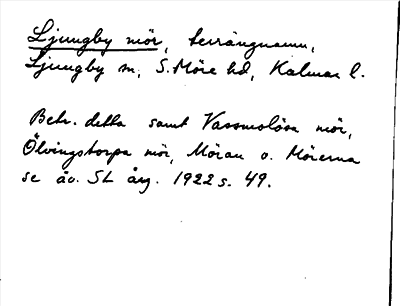 Ljungby mör, terrängnamn,
Ljungby sn, S. Möre hd, Kalmar l.
Betr. detta samt Vassmolösa mör,
Ölvingstorps mör, Möran o. Mörerna
se äv. SL årg. 1922 s. 49.